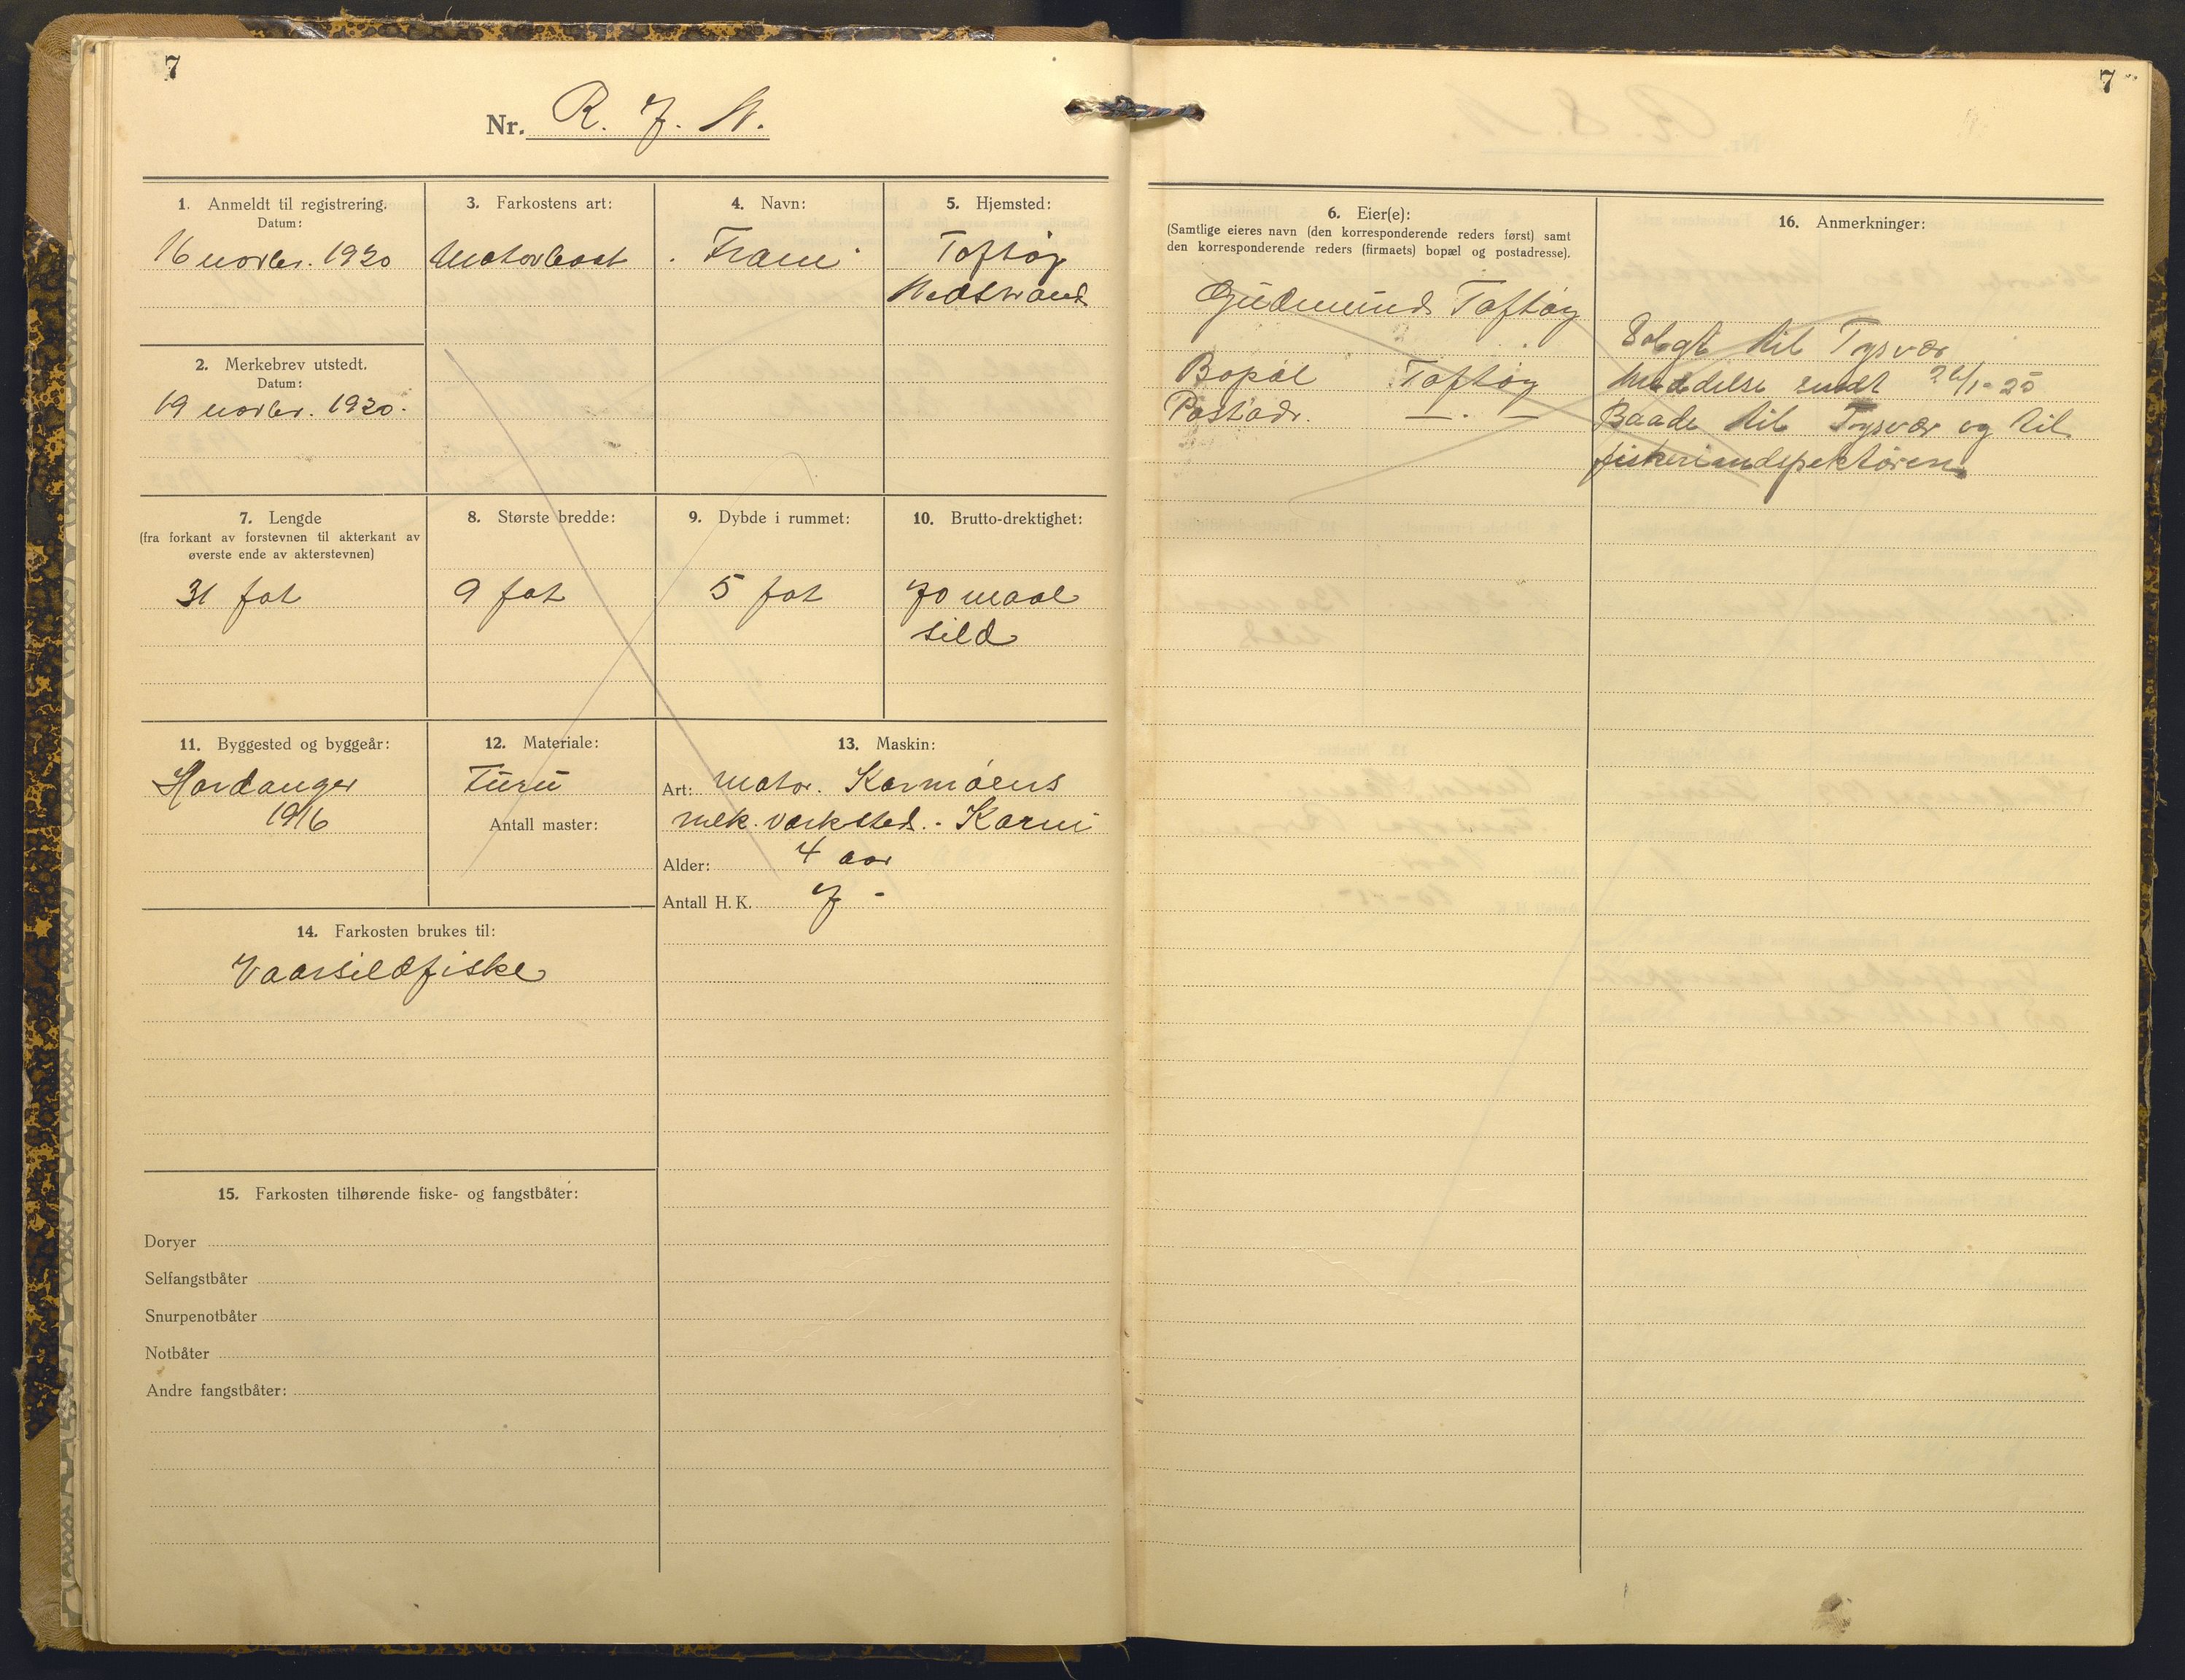 7
Nr. R. 7. N.
1. Anmeldt til registrering.
Datum:
16 novbr. 1920
2. Merkebrev utstedt.
Datum:
19 novbr. 1920.
3. Farkostens art:
Motorbaat
4. Navn:
"Fram"
5. Hjemsted:
Toftøy
Nedstrand
7. Lengde
(fra forkant av forstevnen til akterkant av
øverste ende av akterstevnen)
31 fot
8. Største bredde:
9 fot
9. Dybde i rummet:
5 fot
10. Brutto-drektighet:
70 maal
sild
11. Byggested og byggeår:
Hardanger
1916
12. Materiale:
Furu
Antall master:
13. Maskin:
Art: Motor. Karmøens
mek. værksted. - Karm
Alder: 4 aar
Antall H. K. 7 -
14. Farkosten brukes til:
Vaarsildfiske
15. Farkosten tilhørende fiske- og fangstbåter:
Doryer
Selfangstbåter
Snurpenotbåter
Notbåter
Andre fangstbåter:
7
6. Eier(e):
(Samtlige eieres navn (den korresponderende reders først) samt
den korresponderende reders (firmaets) bopæl og postadresse).
Gudmund Toftøy
Bopæl Toftøy
Postadr. — . —
16. Anmerkninger:
Solgt til Tysvær
Meddelse sendt /1-25
Baade til Tysvær og til
fiskeriindspektøren